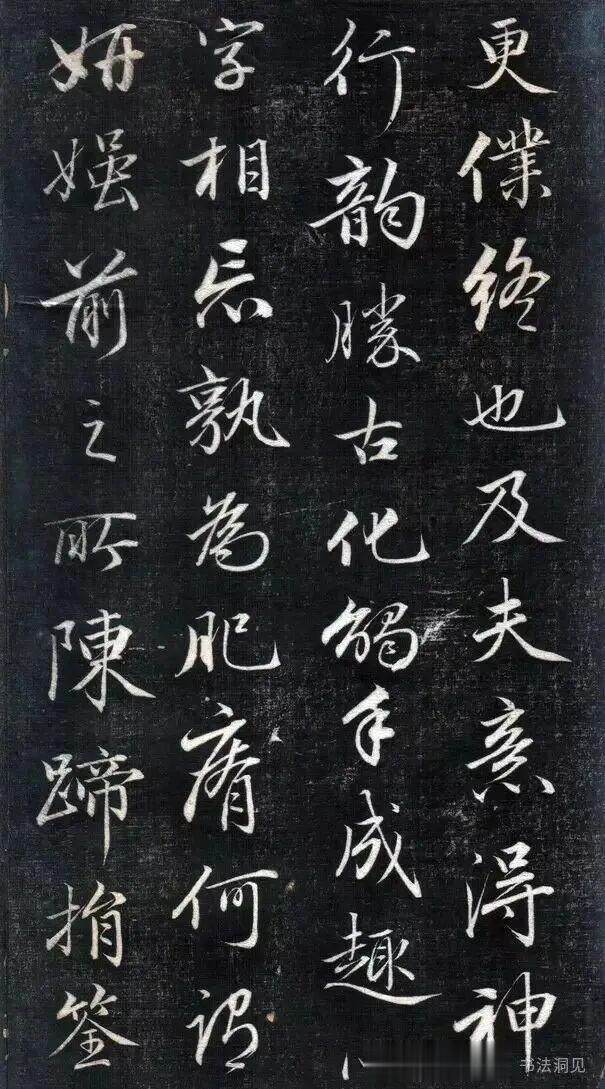 更僕終也及夫意得神
行韻勝古化觸手成趣
字相忘孰為肥瘠何謂
妍媸前之所陳蹄捐筌
书法洞见